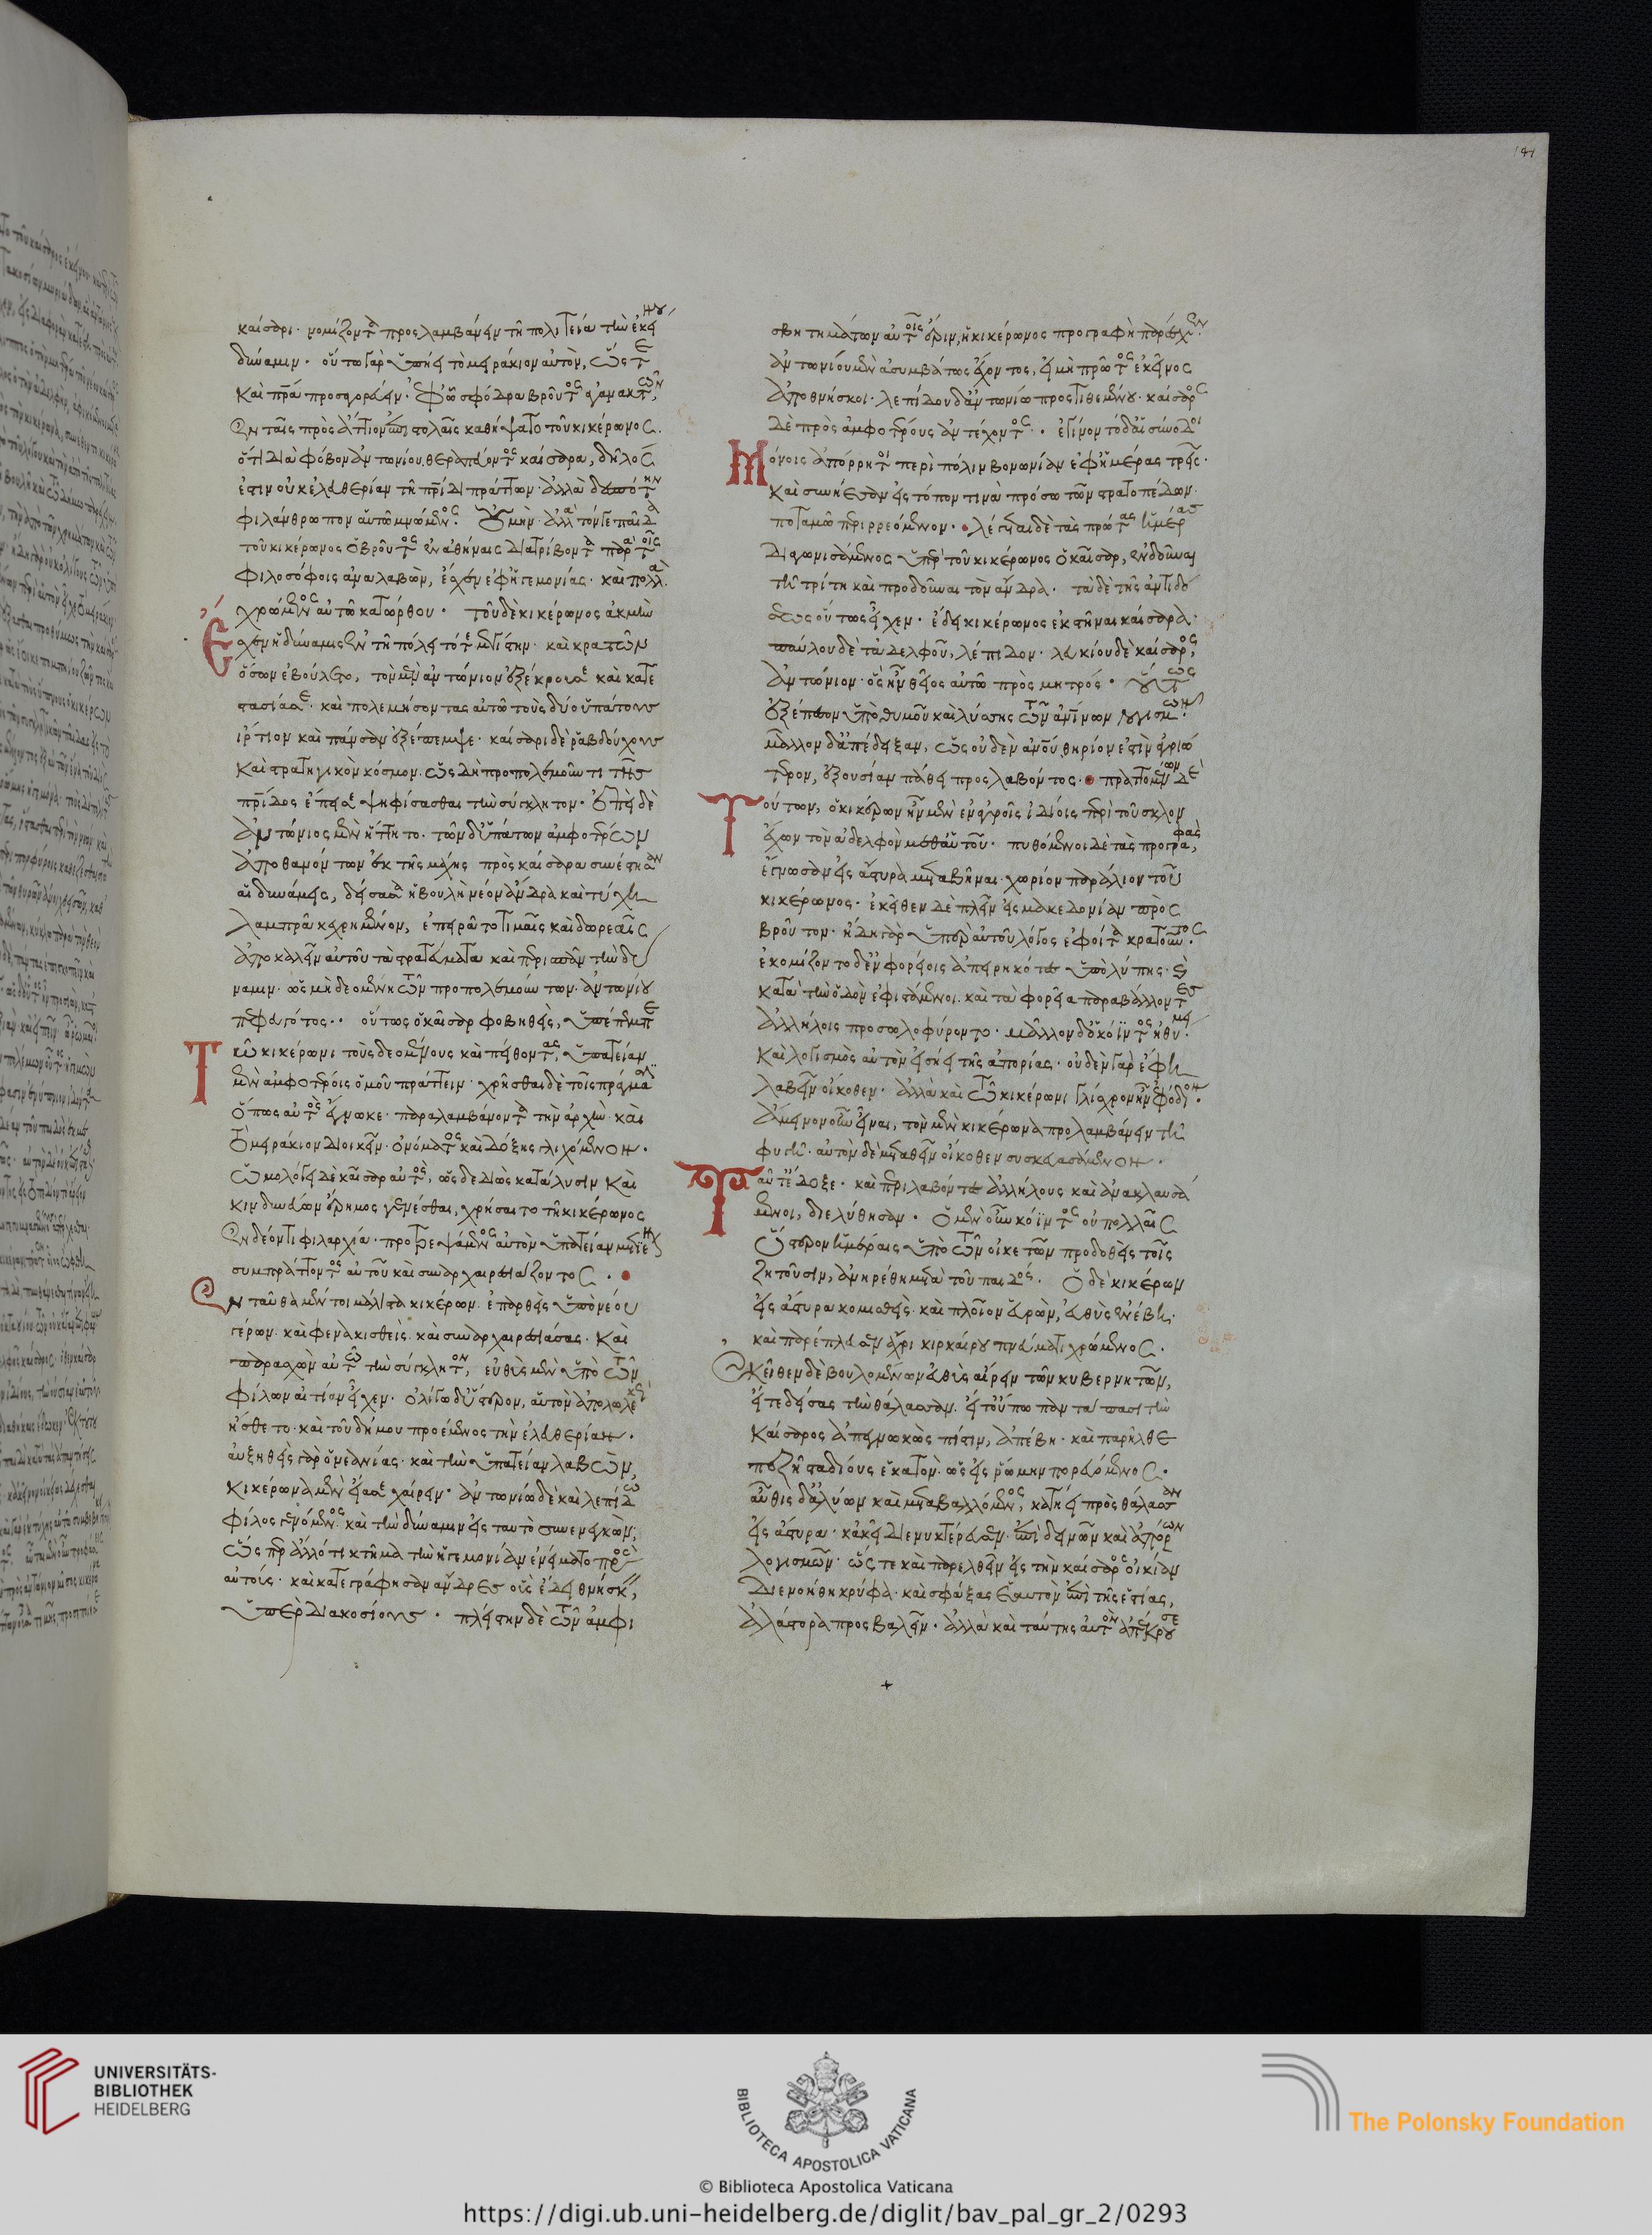 καίσαρι· νομίζοντα προσλαμβάνειν τῇ πολιτεία τὴν ἐκείνου
δύναμιν· οὕτω γὰρ ὑπήει τὸ μειράκιον αὐτὸν, ὥστε
καὶ πρα προσαγορεύειν. ἐφ' ὧ σφόδρα βροῦτος ἀγανακτῶν,
ἐν ταῖς πρὸς ἄττιον ἐπιστολαῖς καθήψατο τοῦ κικέρωνος.
ὅτι διὰ φόβον ἀντωνίου θεραπεύοντος καίσαρα, δῆλος
ἐστιν οὐκ ἐλευθερίαν τῇ πρίδι πράττων· ἀλλὰ δεσπότην
φιλάνθρωπον αὑτῶ μνώμενος. οὐ μὴν ἀλλὰ τόν γε παῖδα
τοῦ κικέρωνος ὁ βροῦτος ἐν ἀθήναις διατρίβοντα παρὰ τοῖς
φιλοσόφοις ἀναλαβὼν, ἔσχεν ἐφ' ἡγεμονίας· καὶ πολλὰ
χρώμενος αὐτῶ κατώρθου. τοῦ δὲ κικέρωνος ἀκμὴν
ἔσχεν ἡ δύναμις ἐν τῇ πόλει τότε μεγίστην· καὶ κρατῶν
ὅσον ἐβούλετο, τὸν μὲν ἀντώνιον ἐξέκρουσε καὶ κατε
στασίασε· καὶ πολεμήσοντας αὐτῶ τοὺς δύο ὑπάτους
ἵρτιον καὶ πάνσαν ἐξέπεμψε· καίσαρι δὲ ῥαβδούχους
καὶ στρατηγικὸν κόσμον. ὡς δὴ προπολεμοῦντι τῆς
πρίδος ἔπεισε ψηφίσασθαι τὴν σύγκλητον. ἐπεὶ δὲ
ἀντώνιος μὲν ἥττητο. τῶν δ' ὑπάτων ἀμφοτέρων
ἀποθανόντων ἐκ τῆς μάχης πρὸς καίσαρα συνέστησαν
αἱ δυνάμεις, δείσασα ἡ βουλὴ νέον ἄνδρα καὶ τύχη
λαμπρᾶ κεχρημένον, ἐπειρᾶτο τιμαῖς καὶ δωρεαῖς
ἀποκαλεῖν αὐτοῦ τὰ στρατεύματα καὶ περισπᾶν τὴν δύ
ναμιν. ὡς μὴ δεομένη τῶν προπολεμούντων. ἀντωνίου
πεφευγότος. οὕτως ὁ καῖσαρ φοβηθεὶς, ὑπέπεμπε
τῶ κικέρωνι τοὺς δεομένους καὶ πείθοντας, ὑπατείαν
μὲν ἀμφοτέροις ὁμοῦ πράττειν. χρῆσθαι δὲ τοῖς πράγμασιν
ὅπως αὐτὸς ἔγνωκε· παραλαμβάνοντα τὴν ἀρχὴν· καὶ
τὸ μειράκιον διοικεῖν· ὀνόματος καὶ δόξης γλιχόμενον.
ὡμολόγει δὲ καῖσαρ αὐτὸς, ὡς δεδιὼς κατάλυσιν καὶ
κινδυνεύων ἔρημος γενέσθαι, χρήσαιτο τῇ κικέρωνος
ἐν δέοντι φιλαρχία· προτρεψάμενος αὐτὸν ὑπατείαν μετιέναι
συμπράττοντος αὐτοῦ καὶ συναρχαιρεσιάζοντος.
ἐνταῦθα μέντοι μάλιστα κικέρων· ἐπαρθεὶς ὑπὸ νέου
γέρων· καὶ φενακισθεὶς· καὶ συναρχαιρεσιάσας· καὶ
παρασχὼν αὐτῶ τὴν σύγκλητον, εὐθὺς μὲν ὑπὸ τῶν
φίλων αἰτίαν εἶχεν. ὀλίγω δ' ὕστερον, αὑτὸν ἀπολωλεκὼς
ἤσθετο· καὶ τοῦ δήμου προέμενος τὴν ἐλευθερίαν.
αὐξηθεὶς γὰρ ὁ νεανίας· καὶ τὴν ὑπατείαν λαβὼν,
κικέρωνα μὲν εἴασε χαίρειν· ἀντωνίω δὲ καὶ λεπίδω
φίλος γενόμενος καὶ τὴν δύναμιν εἰς ταυτὸ συνενεγκὼν,
ὥσπερ ἄλλό τι κτῆμα τὴν ἡγεμονίαν ἐνείματο πρὸς
αὐτοίς· καὶ κατεγράφησαν ἄνδρες οὓς ἔδει θνήσκειν,
ὑπὲρ διακοσίους. πλείστην δὲ τῶν ἀμφι
σβητημάτων αὐτοῖς ἔριν, ἡ κικέρωνος προγραφὴ παρέσχεν
ἀντωνίου μὲν ἀσυμβάτως ἔχοντος, εἰ μὴ πρῶτος ἐκεῖνος
ἀποθνήσκοι· λεπίδου δ' ἀντωνίω προστιθεμένου· καίσαρος
δὲ πρὸς ἀμφοτέρους ἀντέχοντος. ἐγίνοντο δ' αἱ σύνοδοι
μόνοις ἀπόρρητοι περὶ πόλιν βονωνίαν ἐφ' ἡμέρας τρεῖς·
καὶ συνήεσαν εἰς τόπον τινὰ πρόσω τῶν στρατοπέδων
ποταμῶ περιρρεόμενον. λέγεται δὲ τὰς πρώτας ἡμέρας
διαγωνισάμενος ὑπὲρ τοῦ κικέρωνος ὁ καῖσαρ, ἐνδοῦναι
τῇ τρίτη καὶ προδοῦναι τὸν ἄνδρα. τὰ δὲ τῆς ἀντιδό
σεως οὕτως εἶχεν. ἔδει κικέρωνος ἐκστῆναι καίσαρα·
παύλου δὲ τἀδελφοῦ, λέπιδον· λευκίου δὲ καίσαρος,
ἀντώνιον· ὃς ἦν θεῖος αὐτῶ πρὸς μητρός. οὕτως
ἐξέπεσον ὑπὸ θυμοῦ καὶ λύσσης τῶν ἀνινων λογισμῶν·
μᾶλλον δ' ἀπέδειξαν, ὡς οὐδὲν ἀνοῦ θηρίον ἐστὶν ἀγριώ
τερον, ἐξουσίαν πάθει προσλαβόντος. πραττομένων δὲ
τούτων, ὁ κικέρων ἦν μὲν ἐν ἀγροῖς ἰδίοις περὶ τοῦσκλον
ἔχων τὸν ἀδελφὸν μεθ' αὑτοῦ. πυθόμενοι δὲ τὰς προγραφὰς,
ἔγνωσαν εἰς ἄστυρα μεταβῆναι· χωρίον παράλιον τοῦ
κικέρωνος· ἐκεῖθεν δὲ πλεῖν εἰς μακεδονίαν πρὸς
βροῦτον· ἤδη γὰρ ὑπὲρ αὐτοῦ λόγος ἐφοίτα κρατοῦντος.
ἐκομίζοντο δ' ἐν φορείοις ἀπειρηκότες ὑπὸ λύπης· καὶ
κατὰ τὴν ὁδὸν ἐφιστάμενοι· καὶ τὰ φορεῖα παραβάλλοντες
ἀλλήλοις προσωλοφύροντο. μᾶλλον δ' ὁ κόϊντος ἠθύμει·
καὶ λογισμὸς αὐτὸν εἰσήει τῆς ἀπορίας· οὐδὲν γὰρ ἔφη
λαβεῖν οἴκοθεν. ἀλλὰ καὶ τῶ κικέρωνι γλίσχρον ἦν ἐφόδιον·
ἄμεινον οὖν εἶναι, τὸν μὲν κικέρωνα προλαμβάνειν τῇ
φυγῇ· αὐτὸν δὲ μεταθεῖν οἴκοθεν συσκευασάμενον.
ταῦτ' ἔδοξε· καὶ περιλαβόντες ἀλλήλους καὶ ἀνακλαυσά
μενοι, διελύθησαν. ὁ μὲν οὖν κόϊντος οὐ πολλαῖς
ὕστερον ἡμέραις ὑπὸ τῶν οἰκετῶν προδοθεὶς τοῖς
ζητοῦσιν, ἀνηρέθη μετὰ τοῦ παιδός. ὁ δὲ κικέρων
εἰς ἄστυρα κομισθεὶς· καὶ πλοῖον εὑρὼν, εὐθὺς ἐνέβη·
καὶ παρέπλευσεν ἄχρι κιρκαίου πνεύματι χρώμενος.
ἐκεῖθεν δὲ βουλομένων εὐθὺς αἴρειν τῶν κυβερνητῶν,
εἴτε δείσας τὴν θάλασσαν· εἴτ' οὔπω πανταπασι τὴν
καίσαρος ἀπεγνωκὼς πίστιν, ἀπέβη· καὶ παρῆλθε
πεζῇ σταδίους ἑκατὸν· ὡς εἰς ῥώμην πορευόμενος.
αὖθις δ' ἀλύων καὶ μεταβαλλόμενος, κατήει πρὸς θάλασσαν
εἰς ἄστυρα· κἀκεῖ διενυκτέρευσεν· ἐπὶ δεινῶν καὶ ἀπόρων
λογισμῶν· ὥστε καὶ παρελθεῖν εἰς τὴν καίσαρος οἰκίαν
διενοήθη κρύφα· καὶ σφάξας ἑαυτὸν ἐπὶ τῆς ἑστίας,
ἀλάστορα προσβαλεῖν. ἀλλὰ καὶ ταύτης αὐτὸν ἀπέκρουσε
UNIVERSITÄTS-
BIBLIOTHEK
HEIDELBERG
BIBLIOTECA APOSTOLICA VATICANA
The Polonsky Foundation
© Biblioteca Apostolica Vaticana
https://digi.ub.uni-heidelberg.de/diglit/bav_pal_gr_2/0293